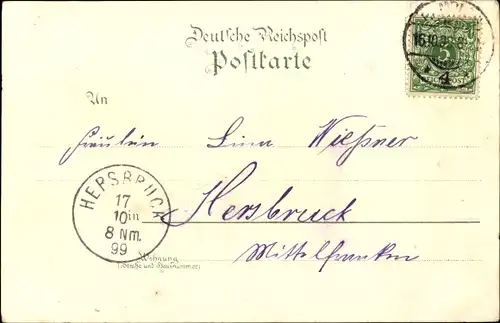 Deutsche Reichspost
Postkarte
An
Fräulein Lina Wießner
in Hersbruck
Mittelfranken
Wohnung
(Straße und Hausnummer)
HERSBRUCK
17
10
8 Nm.
99
16.10.
5
4